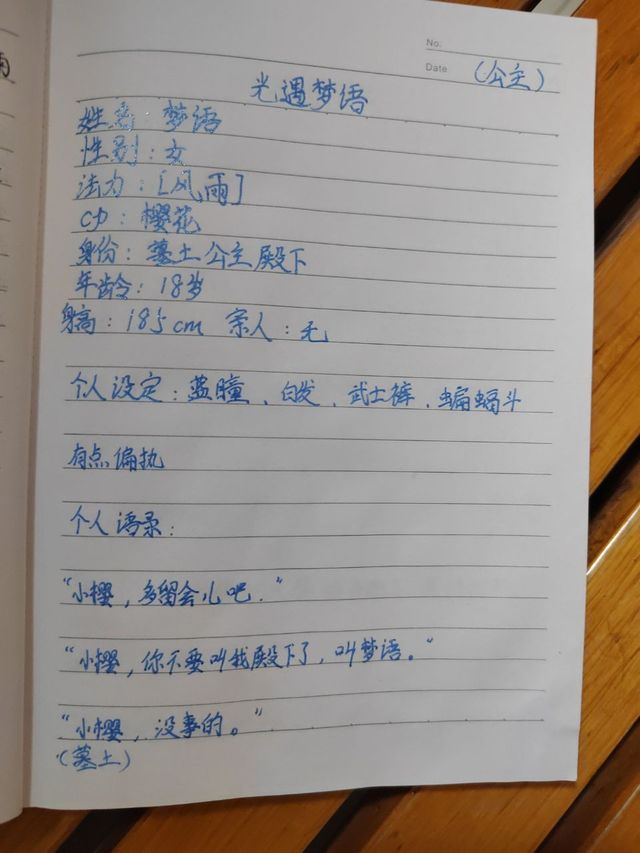 No.
Date (公主)
光遇梦语
姓名 梦语
性别：女
法力：[风雨]
cp：樱花
身份：墓土公主殿下
年龄：18岁
身高：185cm 亲人：无
个人设定：蓝瞳、白发、武士裤、蝙蝠斗
有点偏执
个人语录：
“小樱，多留会儿吧.”
“小樱，你不要叫我殿下了，叫梦语。”
“小樱，没事的。”
(墓土)